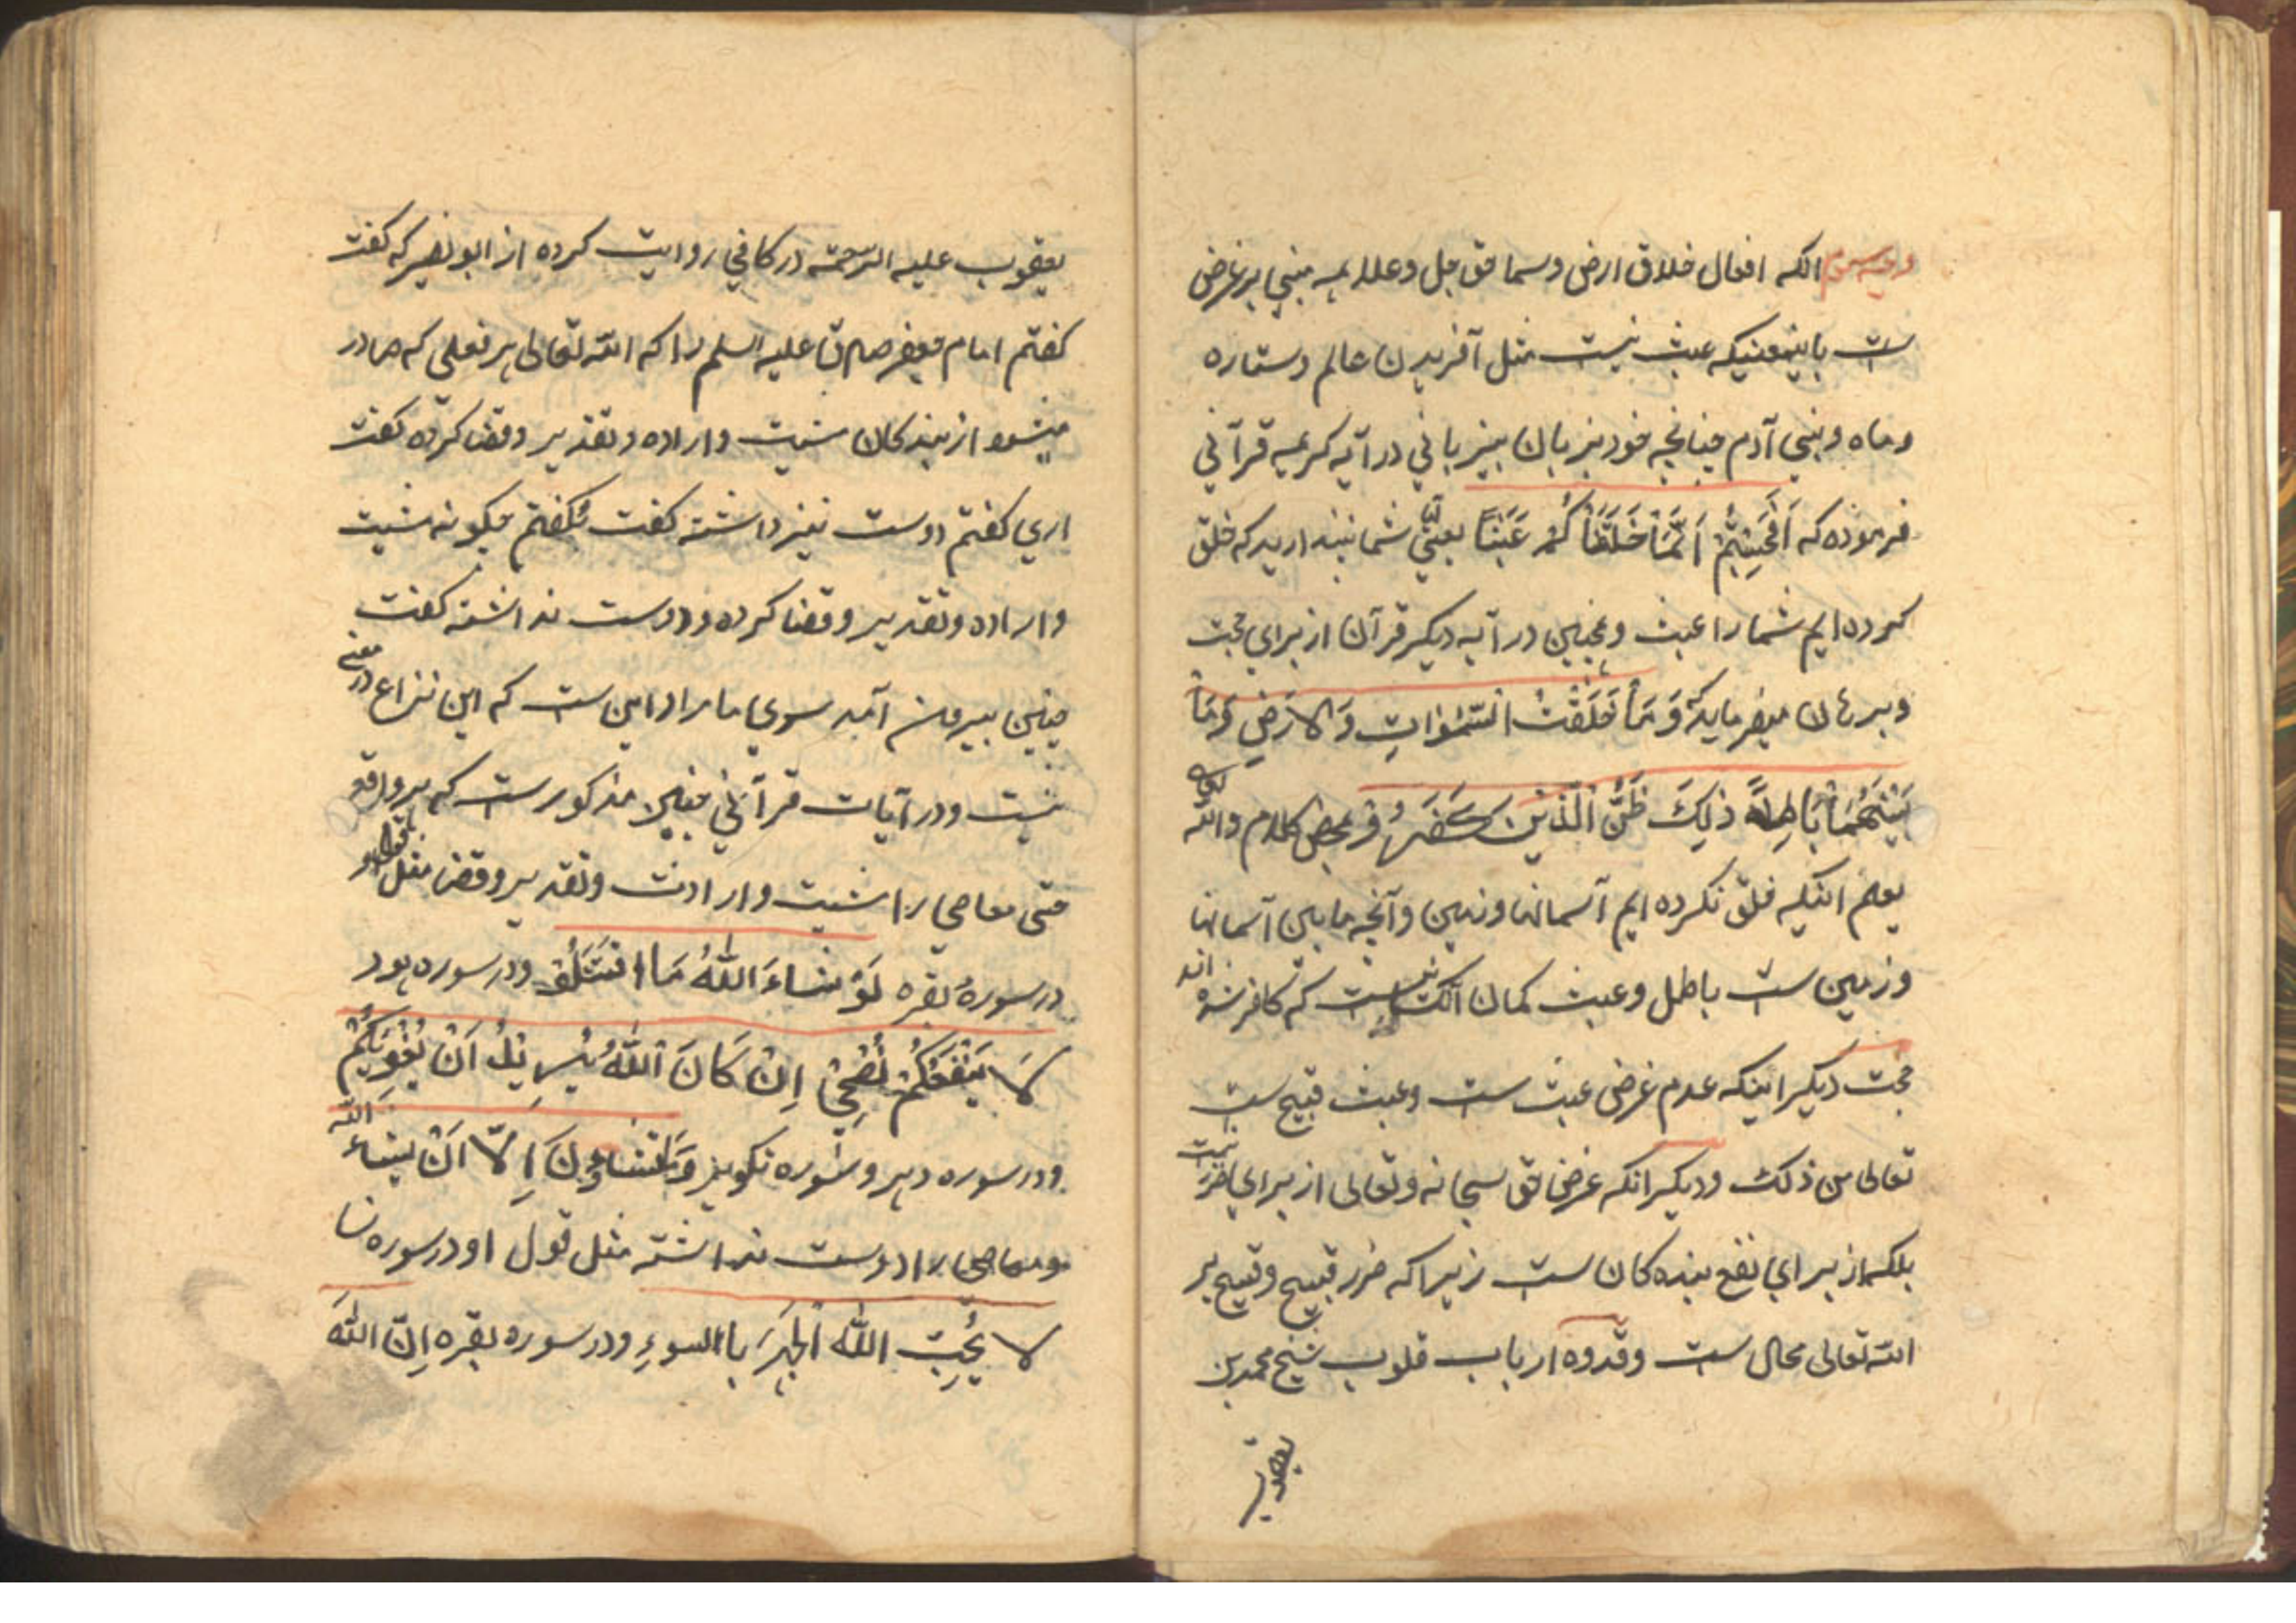 انکه افعال خلاق ارض و سما حق جل و علا همه مبنی بر غرض
ست باینمعنیکه عبث نیست مثل آفریدن عالم و ستاره
و ماه و بنی آدم چنانچه خود بزبان بیزبانی در آیه کریمه قرآنی
فرموده که اَفَحَسِبْتُمْ اَنَّمَا خَلَقْنَا کُمْ عَبَثًا یعنی شما نپندارید که خلق
کرده ایم شما را عبث و همچنین در آیه دیکر قرآن از برای حجت
و برهان میفرماید که وَ مَا خَلَقْتُ السَّمٰوٰاتِ وَ الاَرَضِ وَ مَا
بَیْنَهُمَا بَاطِلاً ذٰلِکَ ظَنُّ الَّذِیْنَ کَفَرُوْ محض کلام والله
یعلم اینکه خلق نکرده ایم آسمانها و زمین و آنچه ما بین آسمانها
و زمین ست باطل و عبث کمان آنکسانست که کافر شده اند
حجت دیکر اینکه عدم غرض عبث ست و عبث قبیح ست
تعالی من ذلک و دیکر انکه غرض حق سبحانه و تعالی از برای ضرر نیست
بلکه از برای نفع بنده کان ست زیرا که ضرر قبیح و قبیح بر
الله تعالی محال ست و قدوه ارباب قلوب شیخ محمد بن
یعقوب
یعقوب علیه الرّحمة در کافی روایت کرده از ابو بصیر که کفت
کفتم امام جعفر صادق علیه السلم را که الله تعالی هر فعلی که صادر
میشود از بندکان مشیت و اراده و تقدیر و قضا کرده کفت
اری کفتم دوست نیز داشته کفت نه کفتم چکونه مشیت
و اراده و تقدیر و قضا کرده و دوست نداشته کفت
چنین بیرون آمد سوی ما مراد این ست که این نزاع در معنی
نیست و در آیات قرآنی چنین مذکور ست که هر واقع
حتی معاصی را مشیت و ارادت و تقدیر و قضا مثل قول او
در سورهٔ بقره لَوْ شَاءَ اللهُ مَا اقْتَتَلُو و در سوره هود
لَا یَنْفَعُکُمْ نُصْحِیْ اِنْ کَانَ اللهُ یُرِیْدُ اَنْ یُغْوِیَکُمْ
و در سوره دهر و سوره تکویر وَ مَا تَشَاؤُنَ اِلّا اَنْ یشاء اللّه
و معاصی را دوست نداشته مثل قول او در سوره نسا
لا یُحِبّ اللّه الْجَهَرَ باالسوءِ و در سوره بقره اِنّ اللّهَ